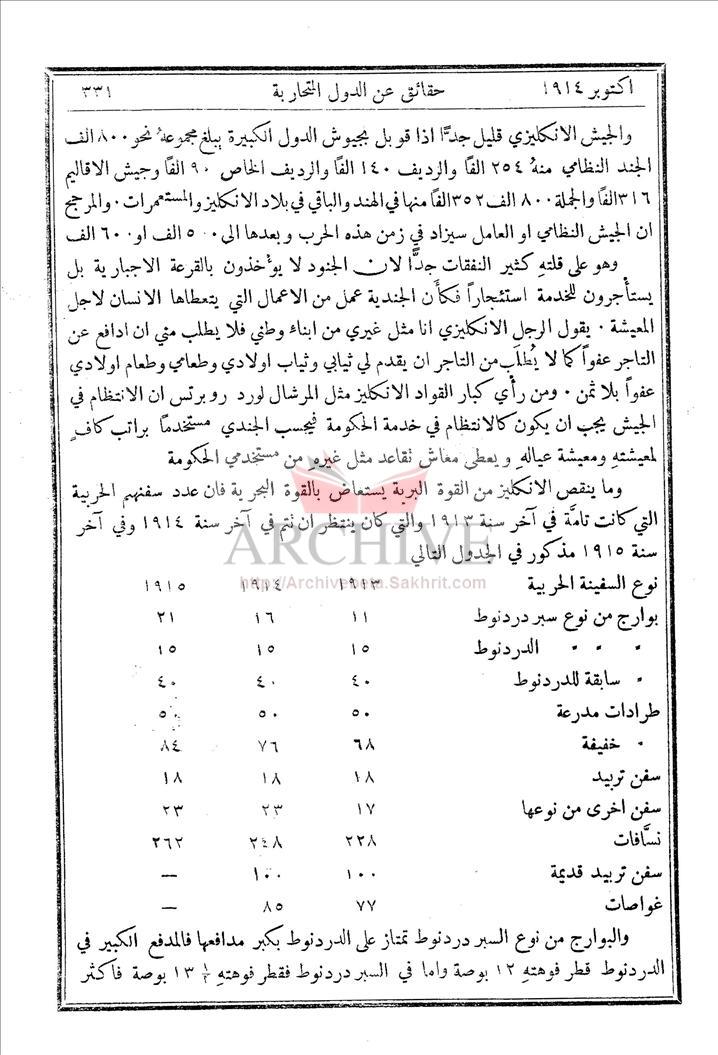 اكتوبر ١٩١٤ حقائق عن الدول المتحاربة ٣٣١
والجيش الانكليزي قليل جدًّا اذا قوبل بجيوش الدول الكبيرة يبلغ مجموعهُ نحو ٨٠٠ الف
الجند النظامي منهُ ٢٥٤ الفًا والرديف ١٤٠ الفًا والرديف الخاص ٩٠ الفًا وجيش الاقاليم
٣١٦ الفًا والجملة ٨٠٠ الف ٣٥٢ الفًا منها في الهند والباقي في بلاد الانكليز والمستعمرات . والمرجح
ان الجيش النظامي او العامل سيزاد في زمن هذه الحرب وبعدها الى ٥٠٠ الف او ٦٠٠ الف
وهو على قلتهِ كثير النفقات جدًّا لان الجنود لا يؤخذون بالقرعة الاجبارية بل
يستأجرون للخدمة استئجاراً فكأن الجندية عمل من الاعمال التي يتعطاها الانسان لاجل
المعيشة . يقول الرجل الانكليزي انا مثل غيري من ابناء وطني فلا يطلب مني ان ادافع عن
التاجر عفواً كما لا يُطلَب من التاجر ان يقدم لي ثيابي وثياب اولادي وطعامي وطعام اولادي
عفواً بلا ثمن . ومن رأي كبار القواد الانكليز مثل المرشال لورد روبرتس ان الانتظام في
الجيش يجب ان يكون كالانتظام في خدمة الحكومة فيحسب الجندي مستخدمًا براتب كافٍ
لمعيشتهِ ومعيشة عيالهِ ويعطى معاش تقاعد مثل غيرهِ من مستخدمي الحكومة
وما ينقص الانكليز من القوة البرية يستعاض بالقوة البحرية فان عدد سفنهم الحربية
التي كانت تامَّة في آخر سنة ١٩١٣ والتي كان ينتظر ان تتم في آخر سنة ١٩١٤ وفي آخر
سنة ١٩١٥ مذكور في الجدول التالي
ARCHIVE
http://Archivebeta.Sakhrit.com
نوع السفينة الحربية ١٩١٣ ١٩١٤ ١٩١٥
بوارج من نوع سبر دردنوط ١١ ١٦ ٢١
" " " الدردنوط ١٥ ١٥ ١٥
" سابقة للدردنوط ٤٠ ٤٠ ٤٠
طرادات مدرعة ٥٠ ٥٠ ٥٠
" خفيفة ٦٨ ٧٦ ٨٤
سفن تربيد ١٨ ١٨ ١٨
سفن اخرى من نوعها ١٧ ٢٣ ٢٣
نسَّافات ٢٢٨ ٢٤٨ ٢٦٢
سفن تربيد قديمة ١٠٠ ١٠٠ —
غواصات ٧٧ ٨٥ —
والبوارج من نوع السبر دردنوط تمتاز على الدردنوط بكبر مدافعها فالمدفع الكبير في
الدردنوط قطر فوهتهِ ١٢ بوصة واما في السبر دردنوط فقطر فوهتهِ ١٣ بوصة فاكثر